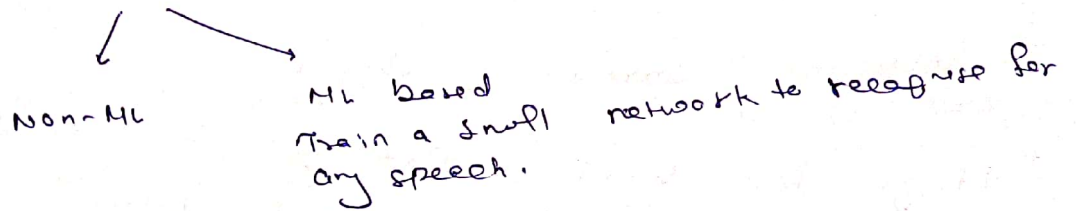 Non-ML
ML based
Train a small network to recognise for
any speech.